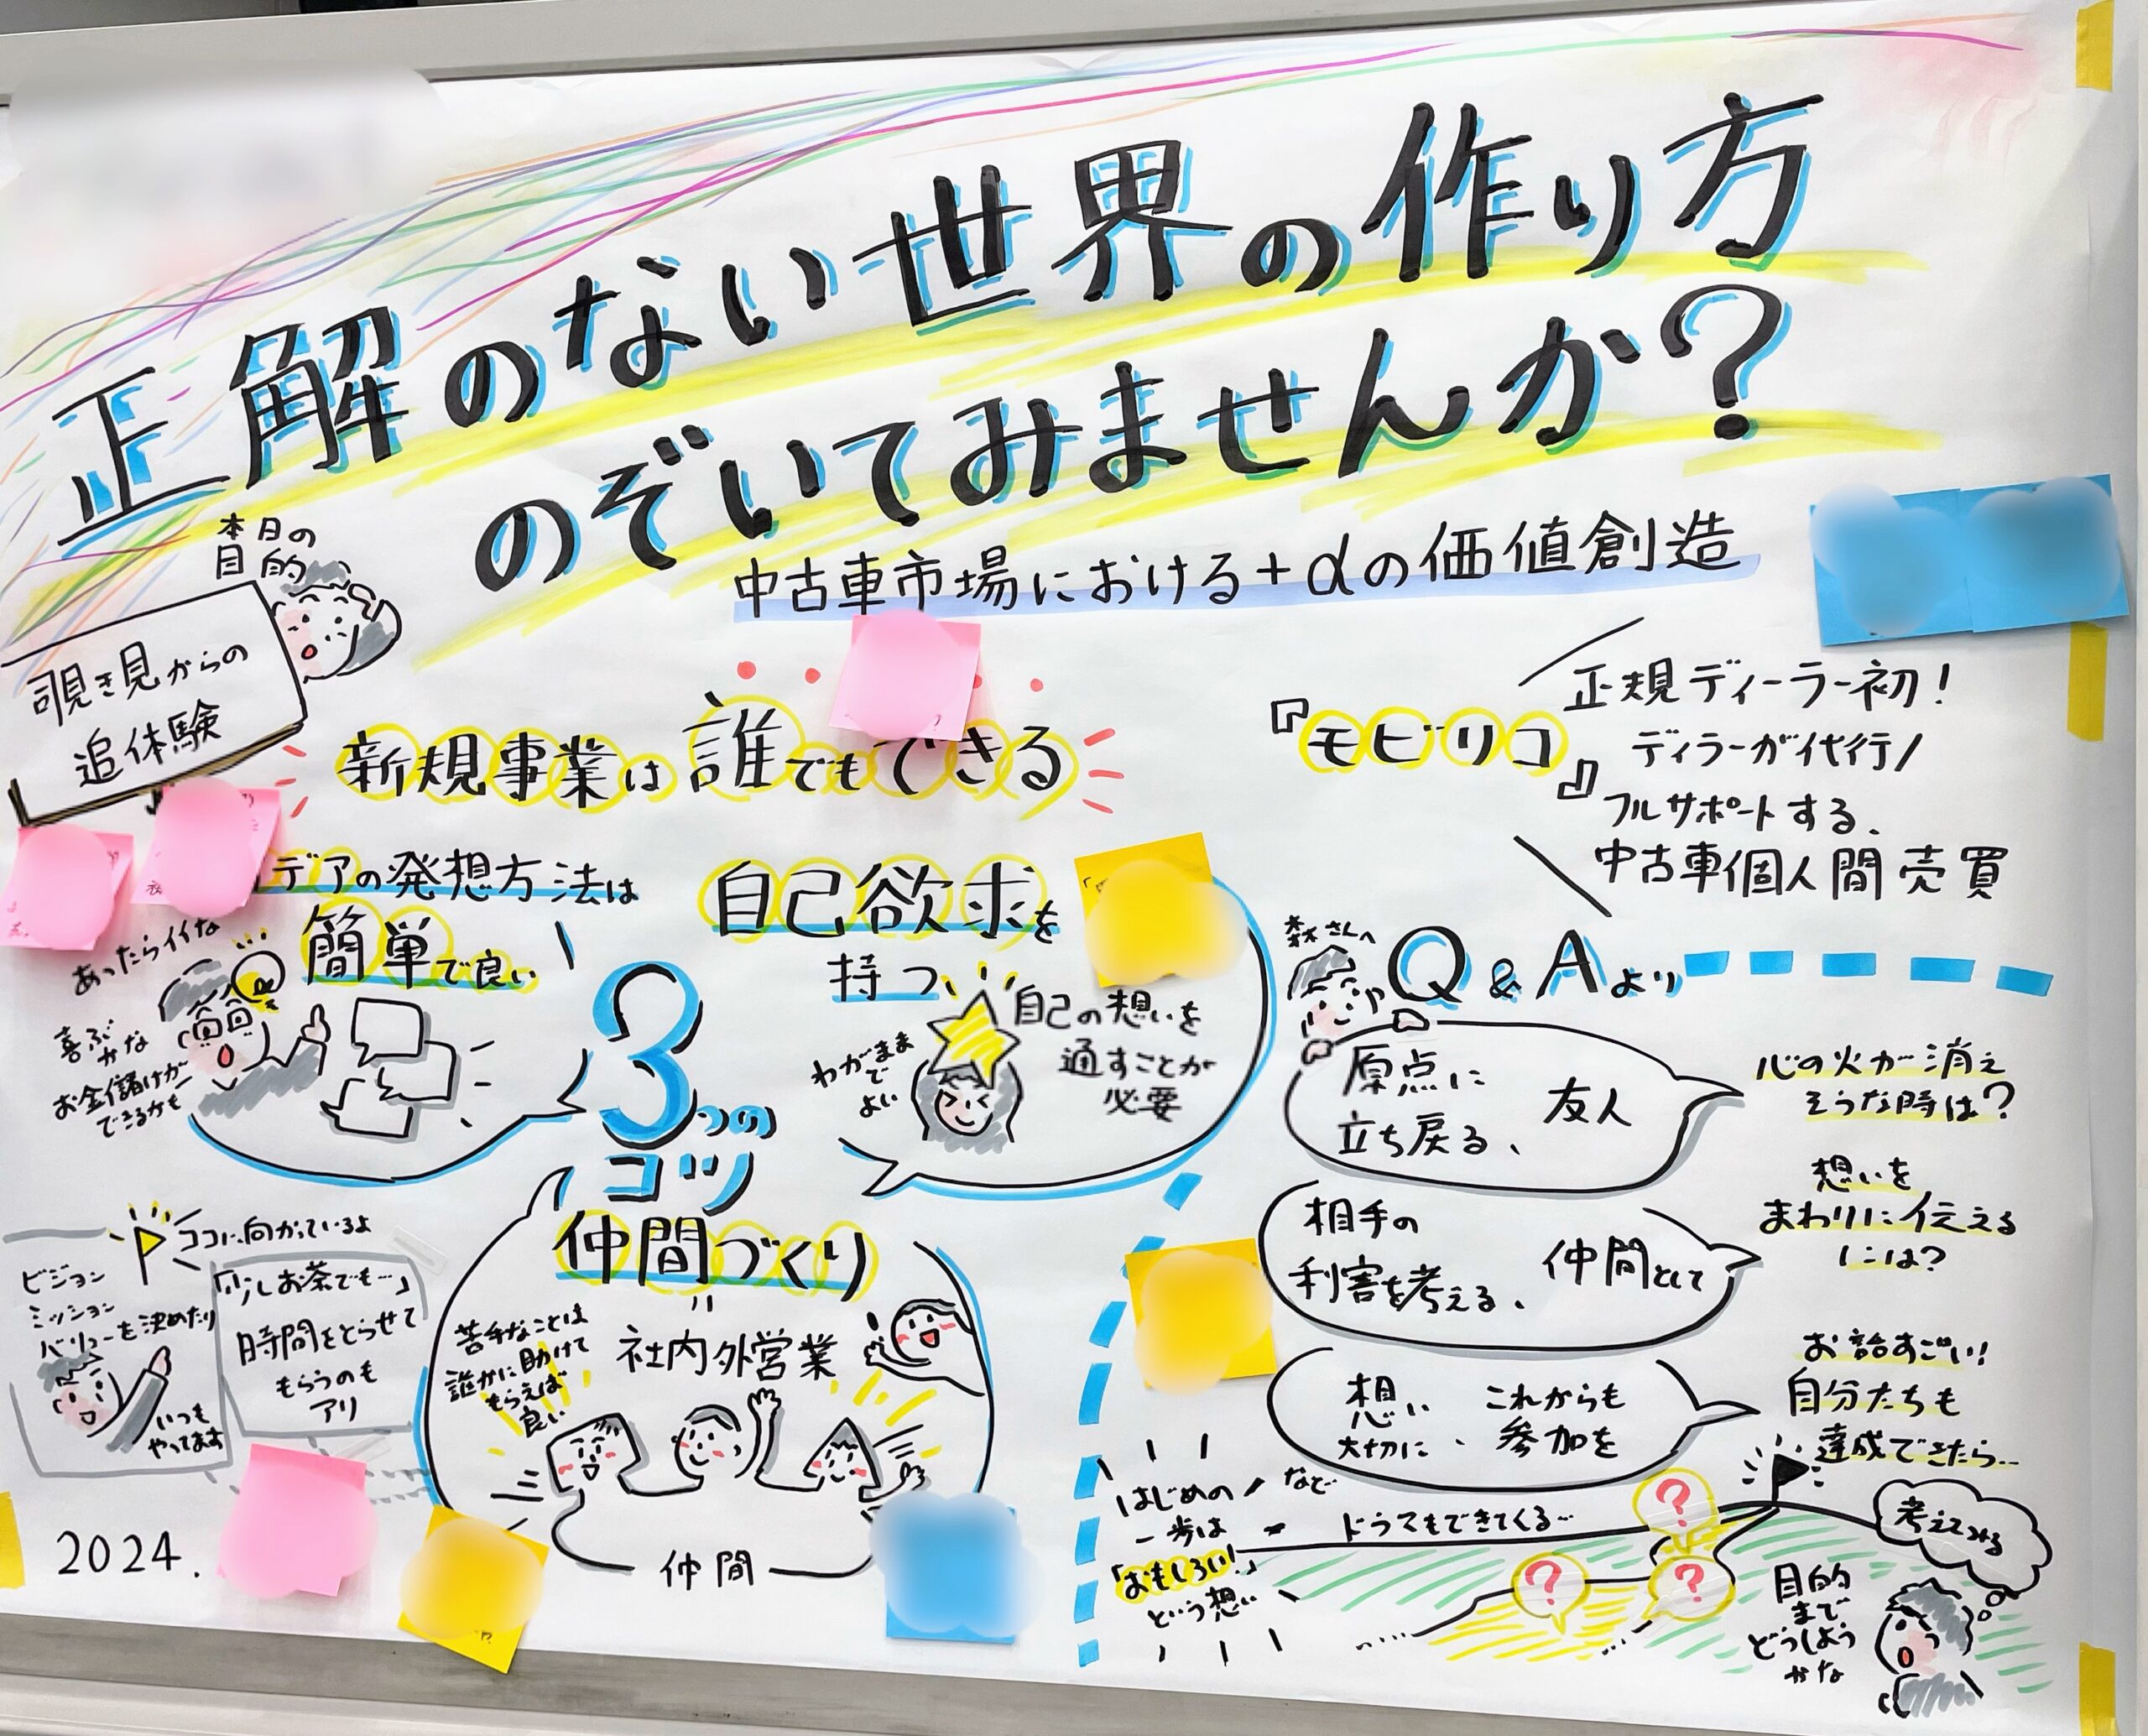 正解のない世界の作り方
のぞいてみませんか?
中古車市場における+αの価値創造
本日の
目的
覗き見からの
追体験
新規事業は誰でもできる
『モビリコ』
正規ディーラー初!
ディラーが代行
フルサポートする、
中古車個人間売買
デアの発想方法は
簡単で良い
あったらイイな
喜ぶ
かな
お金儲けが
できるかも
3つの
コツ
自己欲求を
持つ
わがまま
で
よい
自己の想いを
通すことが
必要
仲間づくり
社内外営業
苦手なことは
誰かに助けて
もらえば
良い
仲間
ココに向かっているよ
ビジョン
ミッション
バリューを決めたり
いつも
やってます
「少しお茶でも…」
時間をとらせて
もらうのも
アリ
2024.
森さんへ
Q&Aより
心の火が消え
そうな時は?
原点に
立ち戻る、
友人
想いを
まわりに伝える
には?
相手の
利害を考える、
仲間として
お話すごい!
自分たちも
達成できたら…
想い
大切に、
これからも
参加を
など
はじめの
一歩は
「おもしろい!」
という想い
ドラマもできてくる…
?
?
?
考えてみる
目的
まで
どうしよう
かな